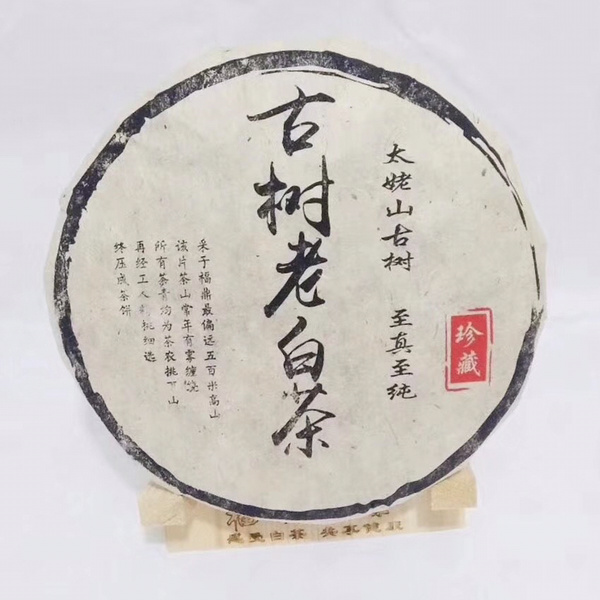 古树老白茶
太姥山古树 至真至纯
珍藏
采于福鼎最偏远五百米高山
该片茶山常年有雾缠绕
所有茶青均为茶农挑下山
再经工人 挑细选
终压成茶饼
白茶